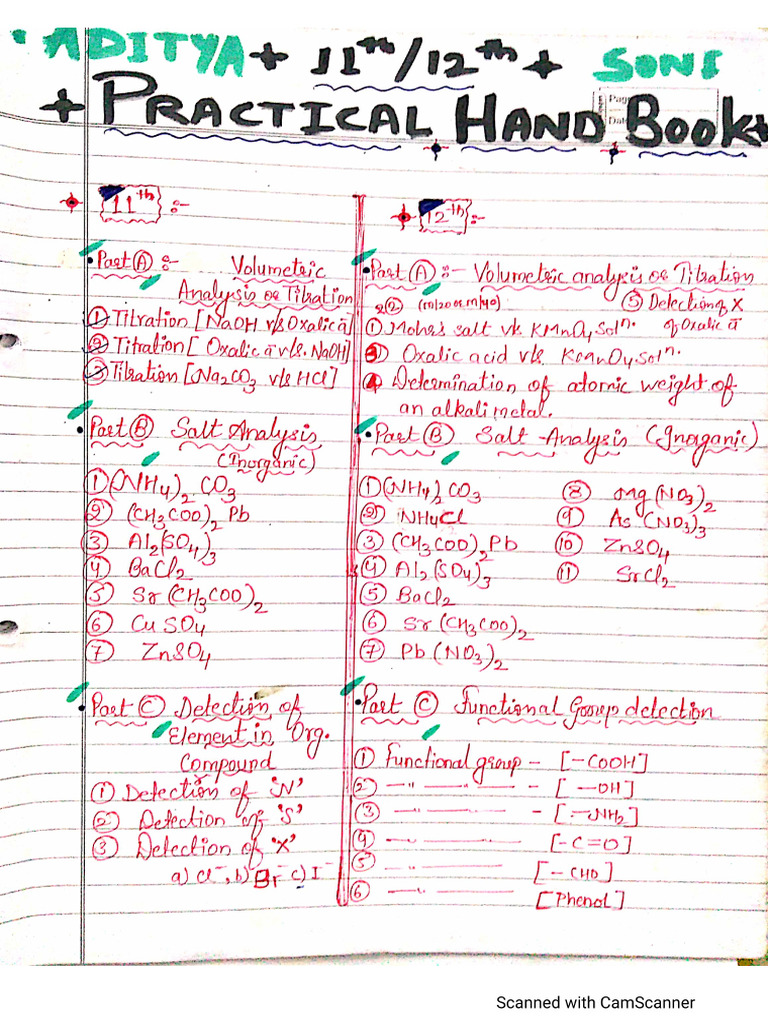 • ADITYA + 11th/12th + SONI
+ PRACTICAL HAND BOOK +
Page
Date
11th :-
• Part (A) :- Volumetric
Analysis or Titration
① Titration [NaOH v/s Oxalic ā]
② Titration [Oxalic ā v/s. NaOH]
③ Titration [Na2CO3 v/s HCl]
• Part (B) Salt Analysis
(Inorganic)
① (NH4)2 CO3
② (CH3COO)2 Pb
③ Al2(SO4)3
④ BaCl2
⑤ Sr(CH3COO)2
⑥ CuSO4
⑦ ZnSO4
• Part (C) Detection of
Element in Org.
Compound
① Detection of 'N'
② Detection of 'S'
③ Detection of 'X'
a) Cl⁻, b) Br⁻ c) I⁻
12th :-
• Part (A) :- Volumetric analysis or Titration
(m/20 or m/40) ⑤ Detection of X
① Mohr's salt v/s. KMnO4 Soln. of Oxalic ā
③ Oxalic acid v/s KMnO4 Soln.
④ Determination of atomic weight of
an alkali metal.
• Part (B) Salt Analysis (Inorganic)
① (NH4)2 CO3
② NH4Cl
③ (CH3COO)2 Pb
④ Al2(SO4)3
⑤ BaCl2
⑥ Sr(CH3COO)2
⑦ Pb(NO3)2
⑧ Mg(NO3)2
⑨ As(NO3)3
⑩ ZnSO4
⑪ SrCl2
• Part (C) Functional Group detection
① Functional group - [-COOH]
② —"— —"— - [-OH]
③ —"— —"— - [-NH2]
④ —"— —"— [-C=O]
⑤ —"— —"— [-CHO]
⑥ —"— —"— [Phenol]
Scanned with CamScanner